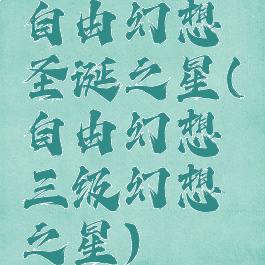 自由幻想
圣诞之星(
自由幻想
三级幻想
之星)